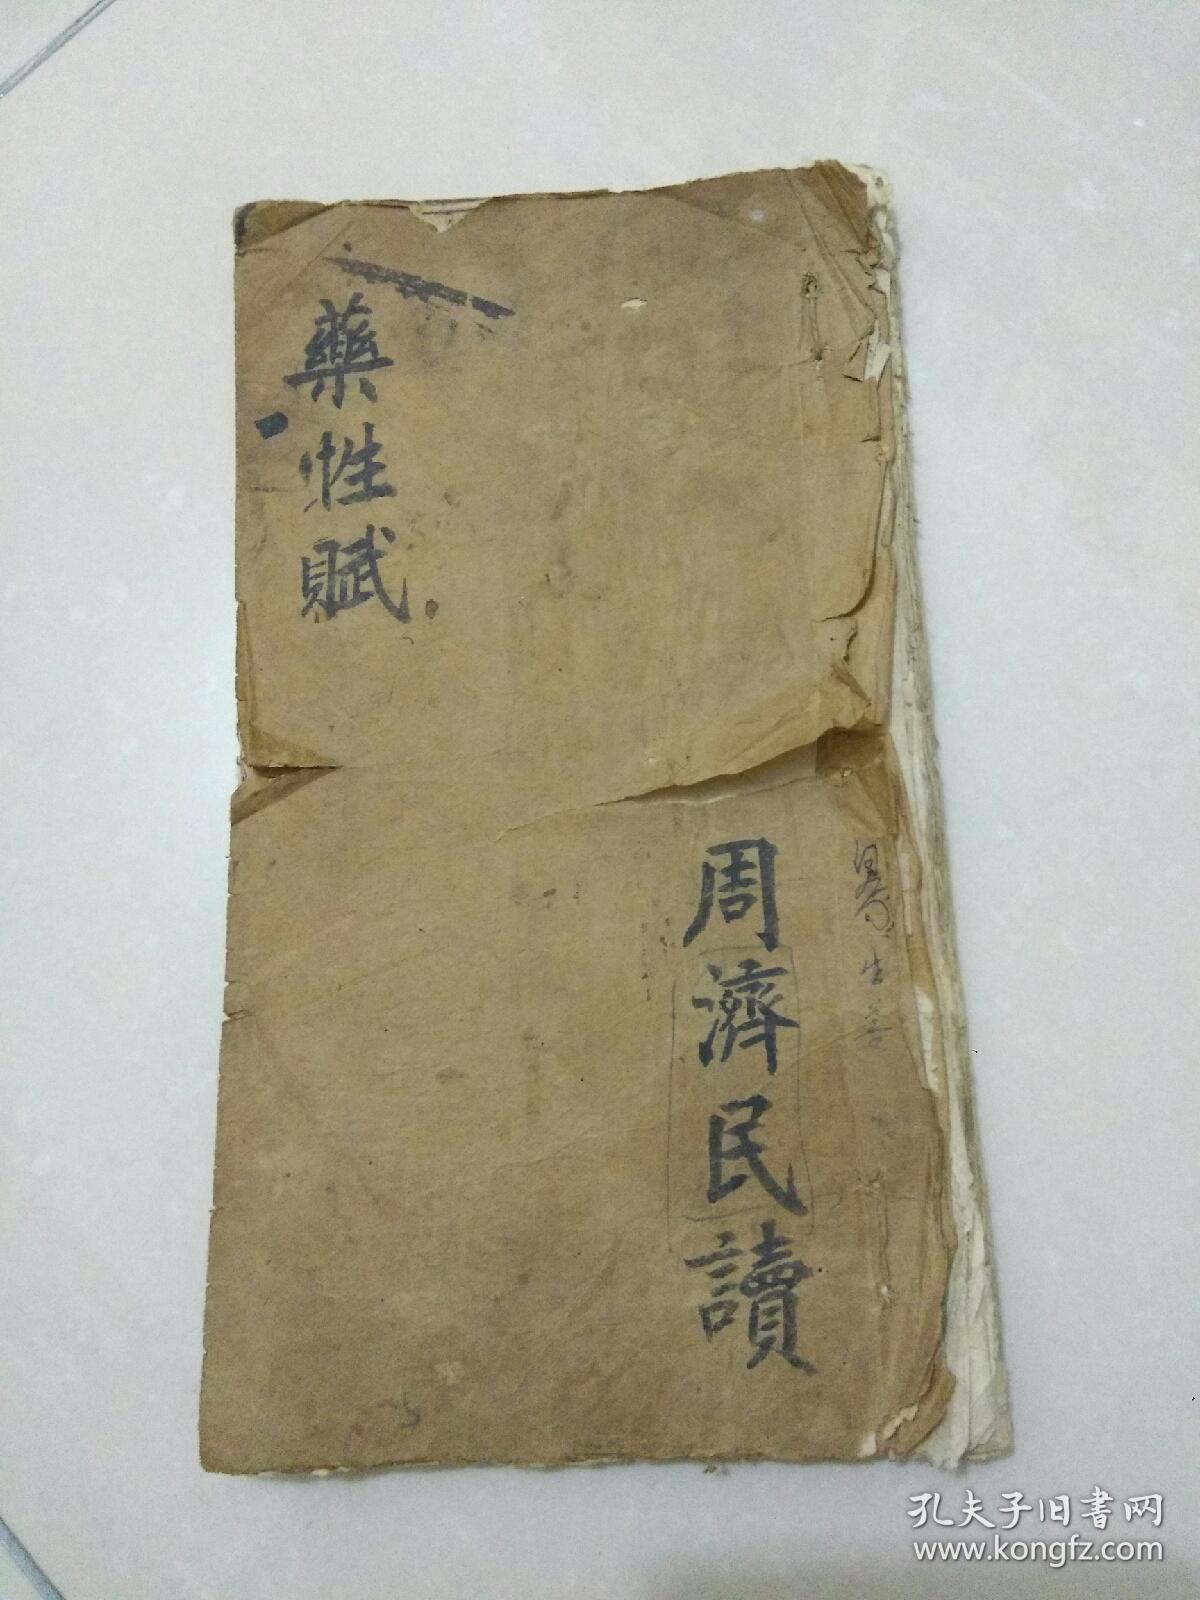 藥性賦
周濟民讀
孔夫子旧書网
www.kongfz.com